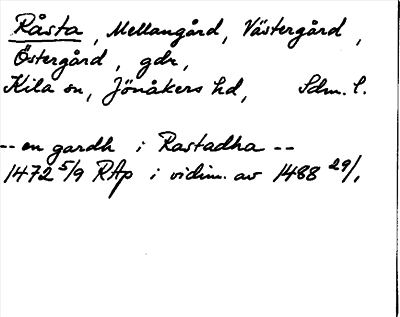 Råsta, Mellangård, Västergård,
Östergård, gdr,
Kila sn, Jönåkers hd, Sdm. l.
-- en gardh i Rastadha --
1472 5/9 RAp i vidim. av 1488 29/1.